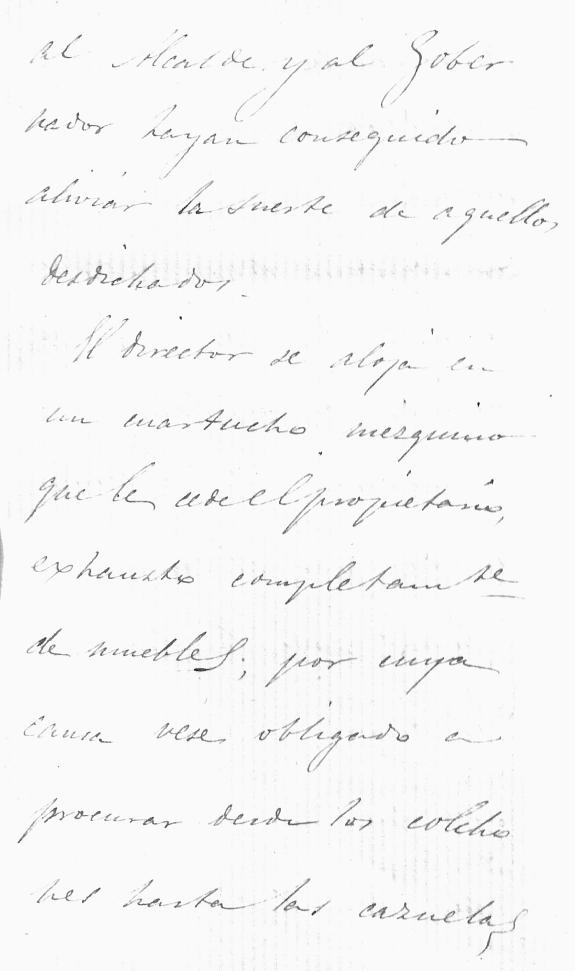 al Alcalde y al Gober
nador hayan conseguido
aliviar la suerte de aquellos
desdichados.
El director se aloja en
un cuartucho mezquino
que le cede el propietario,
exhausto completamte
de muebles, por cuya
causa vése obligado a
procurar desde los colcho
nes hasta las cazuelas